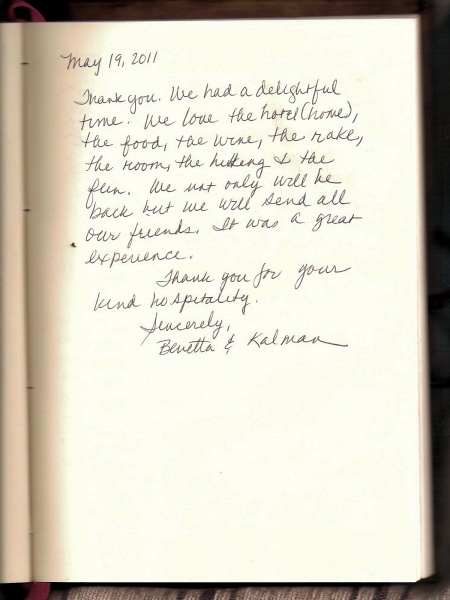 May 19, 2011
Thank you. We had a delightful
time. We love the hotel (home),
the food, the wine, the
the room, the & the
fun. We not only will be
back but we will send all
our friends. It was a great
experience.
Thank you for your
kind hospitality.
Sincerely,
Benetta & Kalman